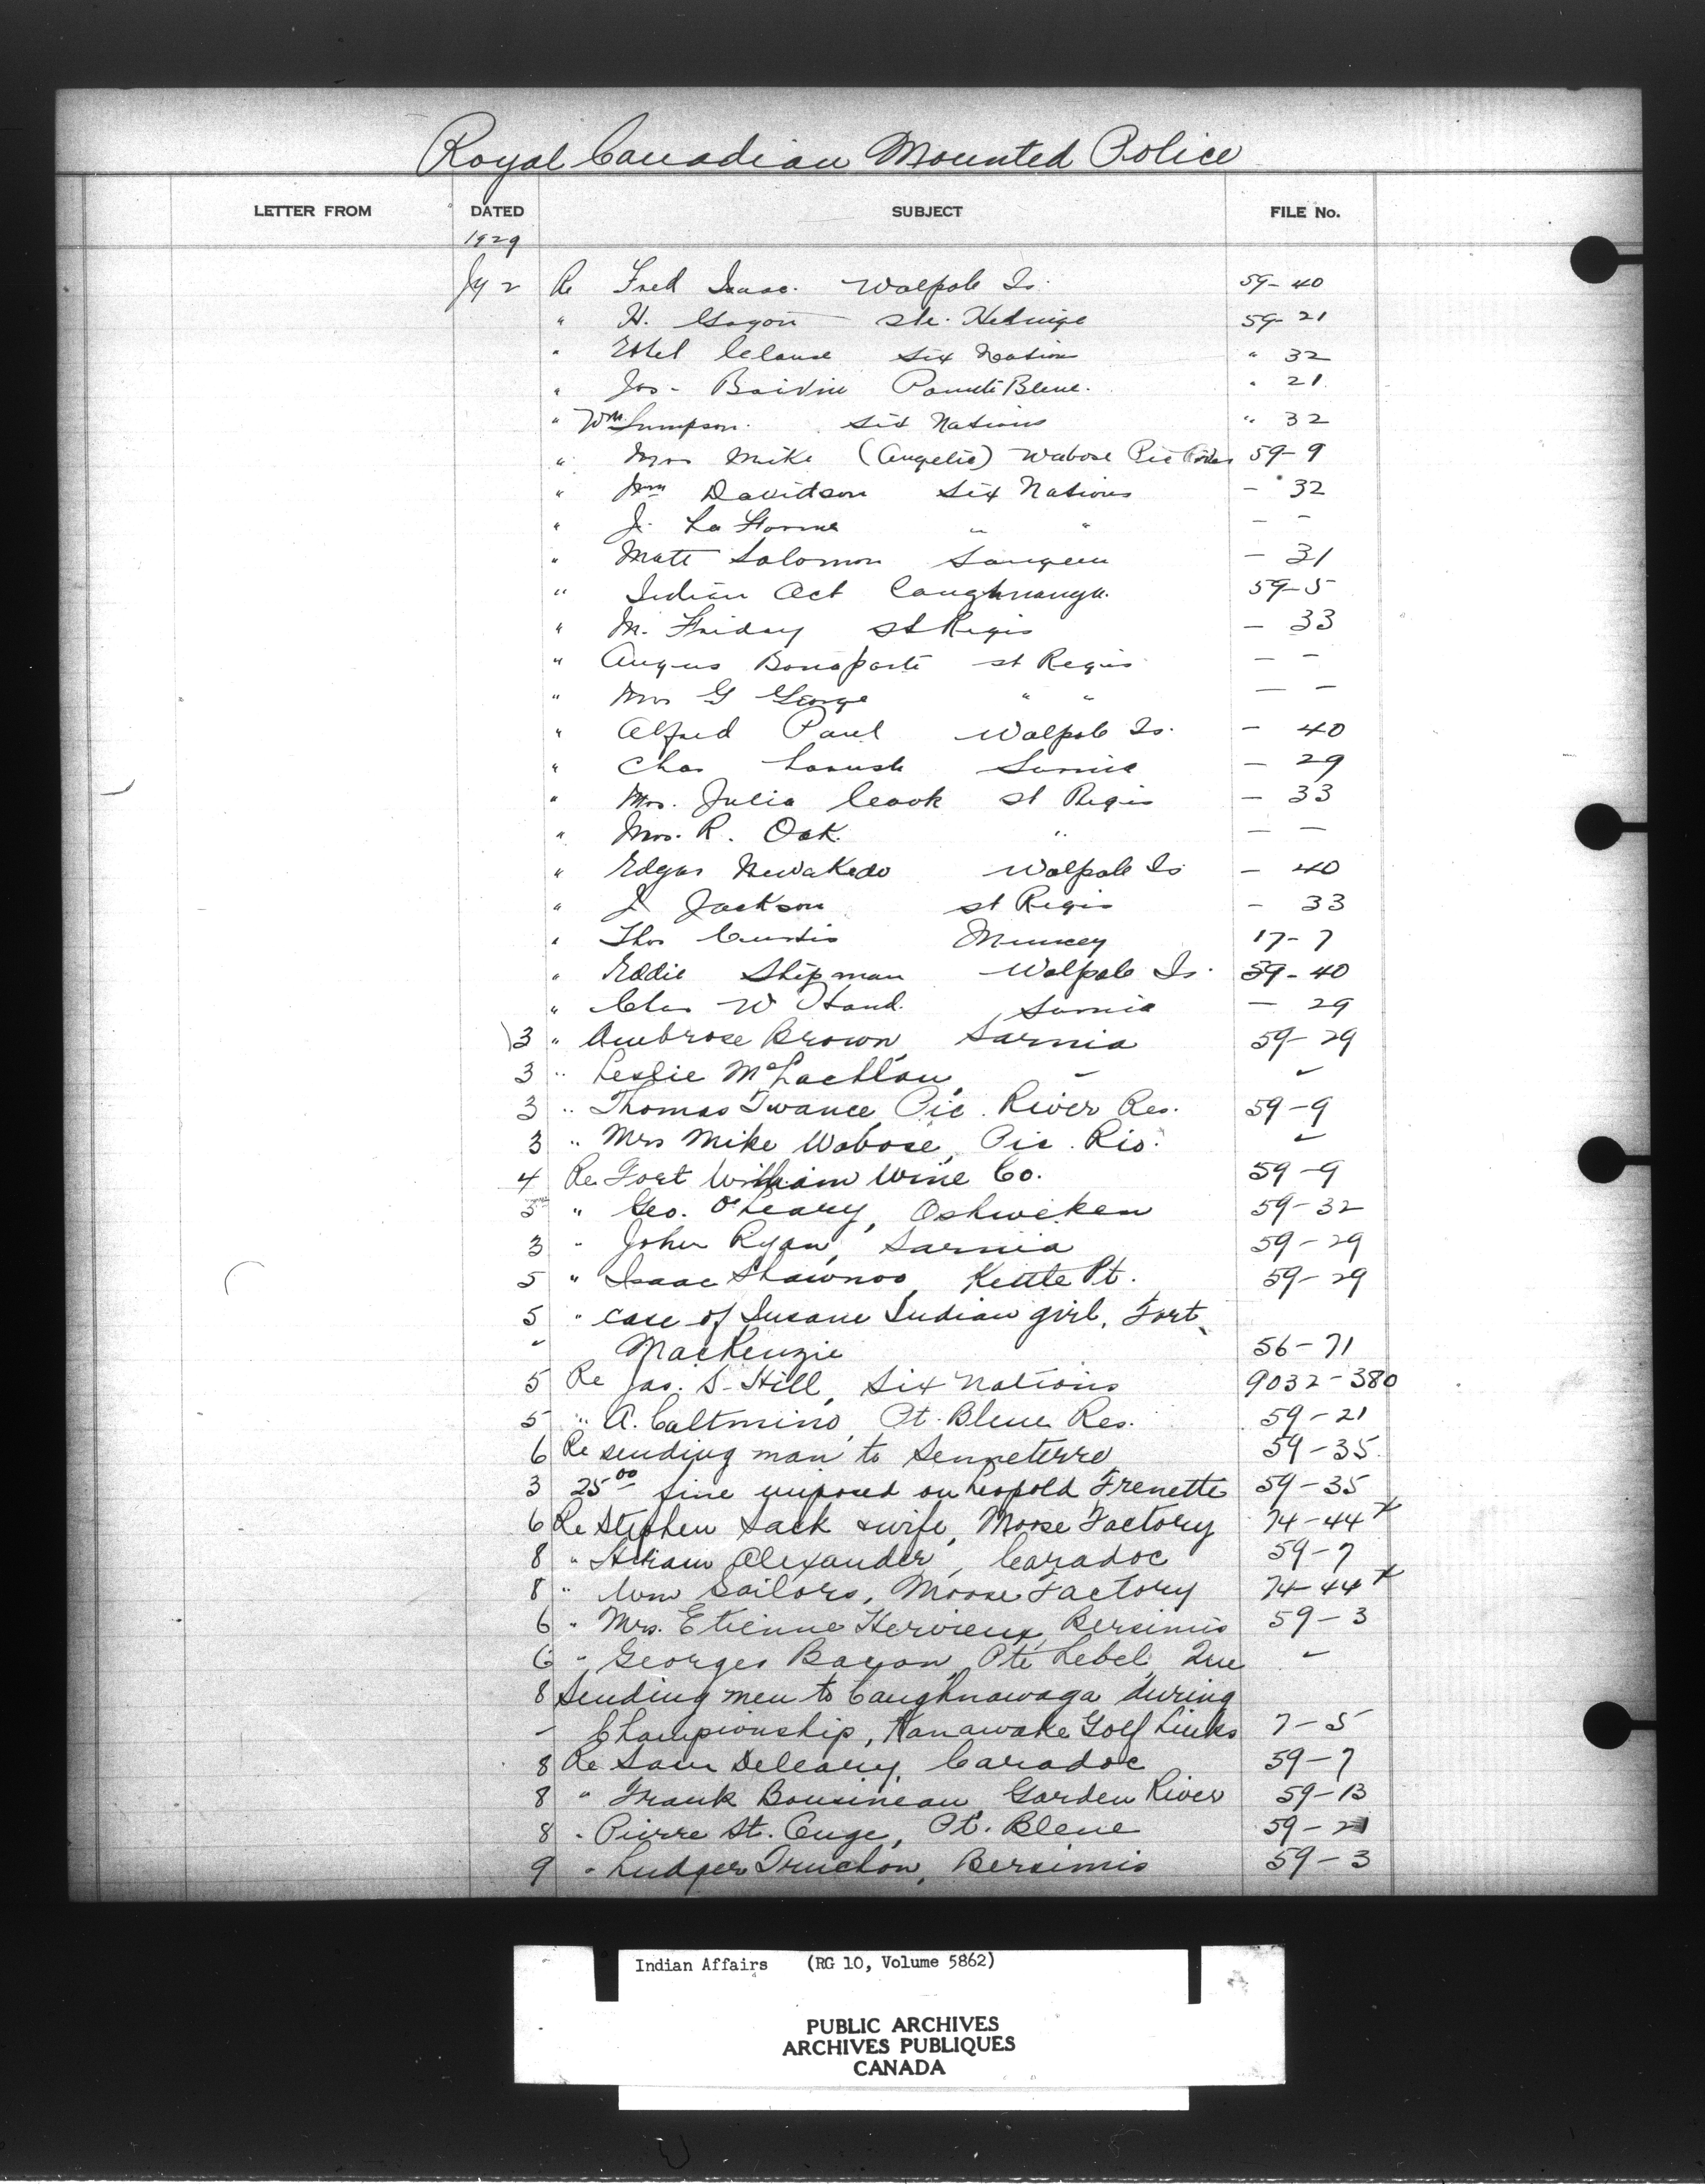 Royal Canadian Mounted Police
LETTER FROM DATED SUBJECT FILE No.
1929
Jy 2 Re Fred Isaac. Walpole Is. 59-40
" H. Gagon Ste. Hedwige 59-21
" Ethel Clause Six Nations " 32
" Jos- Boivin Pointe Bleue. " 21
" Wm Simpson. Six Nations " 32
" Mrs Mike (Angelic) Wabose Pic River 59-9
" Wm Davidson Six Nations - 32
" J. La Forme " " - -
" Matt Solomon Saugeen - 31
" Indian Act Caughnauga. 59-5
" M. Friday St Regis - 33
" Angus Bonaparte St Regis - -
" Mrs G George " " - -
" Alfred Paul Walpole Is. - 40
" Chas Sarnia - 29
" Mrs. Julia Cook St Regis - 33
" Mrs. R. Oak. " - -
" Edgar Newakedo Walpole Is - 40
" J Jackson St Regis - 33
" Thos Curtis Muncey 17-7
" Eddie Shipman Walpole Is. 59-40
" Chas W Hand. Sarnia - 29
3 " Ambrose Brown, Sarnia 59-29
3 " Leslie McLachlan, " "
3 " Thomas Twance, Pic. River Res. 59-9
3 " Mrs Mike Wabose, Pic. Riv. "
4 Re Fort William Wine Co. 59-9
5 " Geo. O'Leary, Oshweken 59-32
3 " John Ryan, Sarnia 59-29
5 " Isaac Shawnoo, Kettle Pt. 59-29
5 " case of Insane Indian girl, Fort
" MacKenzie 56-71
5 Re Jas. S. Hill, Six Nations 9032-380
5 " A. Caltmino, Pt. Bleue Res. 59-21
6 Re sending man to Senneterre 59-35
3 25 00 fine imposed on Leopold Frenette 59-35
6 Re Stephen Sack & wife, Moose Factory 74-44 x
8 " Hiram Alexander, Caradoc 59-7
8 " Wm Sailors, Moose Factory 74-44 x
6 " Mrs. Etienne Hervieux, Bersimis 59-3
6 " Georges Bacon, Pte Lebel, Que "
8 Sending men to Caughnawaga during
- Championship, Kanawake Golf Links 7-5
8 Re Sam Deleary, Caradoc 59-7
8 " Frank Bousineau, Garden River 59-13
8 " Pierre St. Onge, Pt. Bleue 59-21
9 " Ludger Truchon, Bersimis 59-3
Indian Affairs (RG 10, Volume 5862)
PUBLIC ARCHIVES
ARCHIVES PUBLIQUES
CANADA